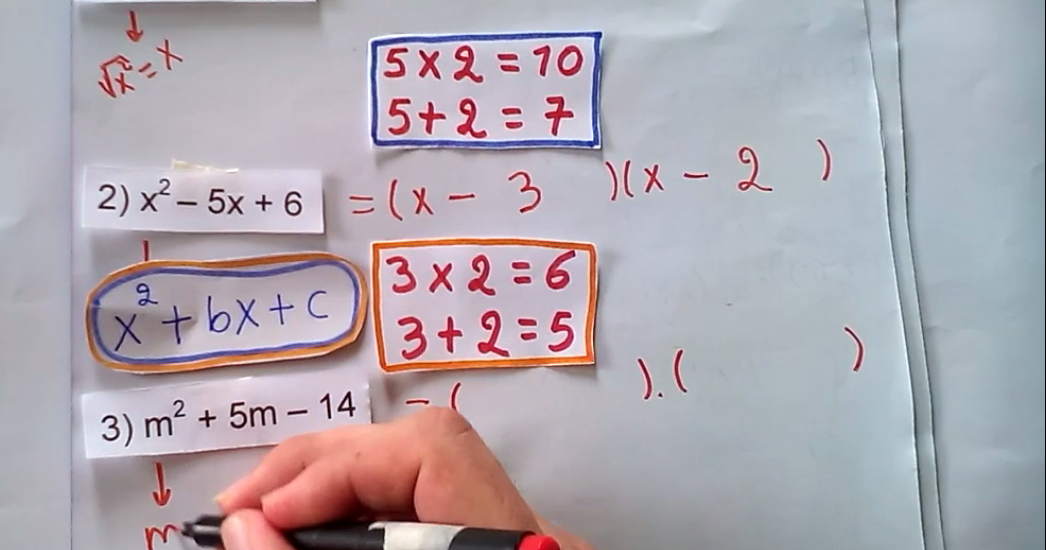 √x² = x
5 x 2 = 10
5 + 2 = 7
2) x² – 5x + 6 = (x – 3 )(x – 2 )
x² + bx + c
3 x 2 = 6
3 + 2 = 5
3) m² + 5m – 14 = ( ).( )
m